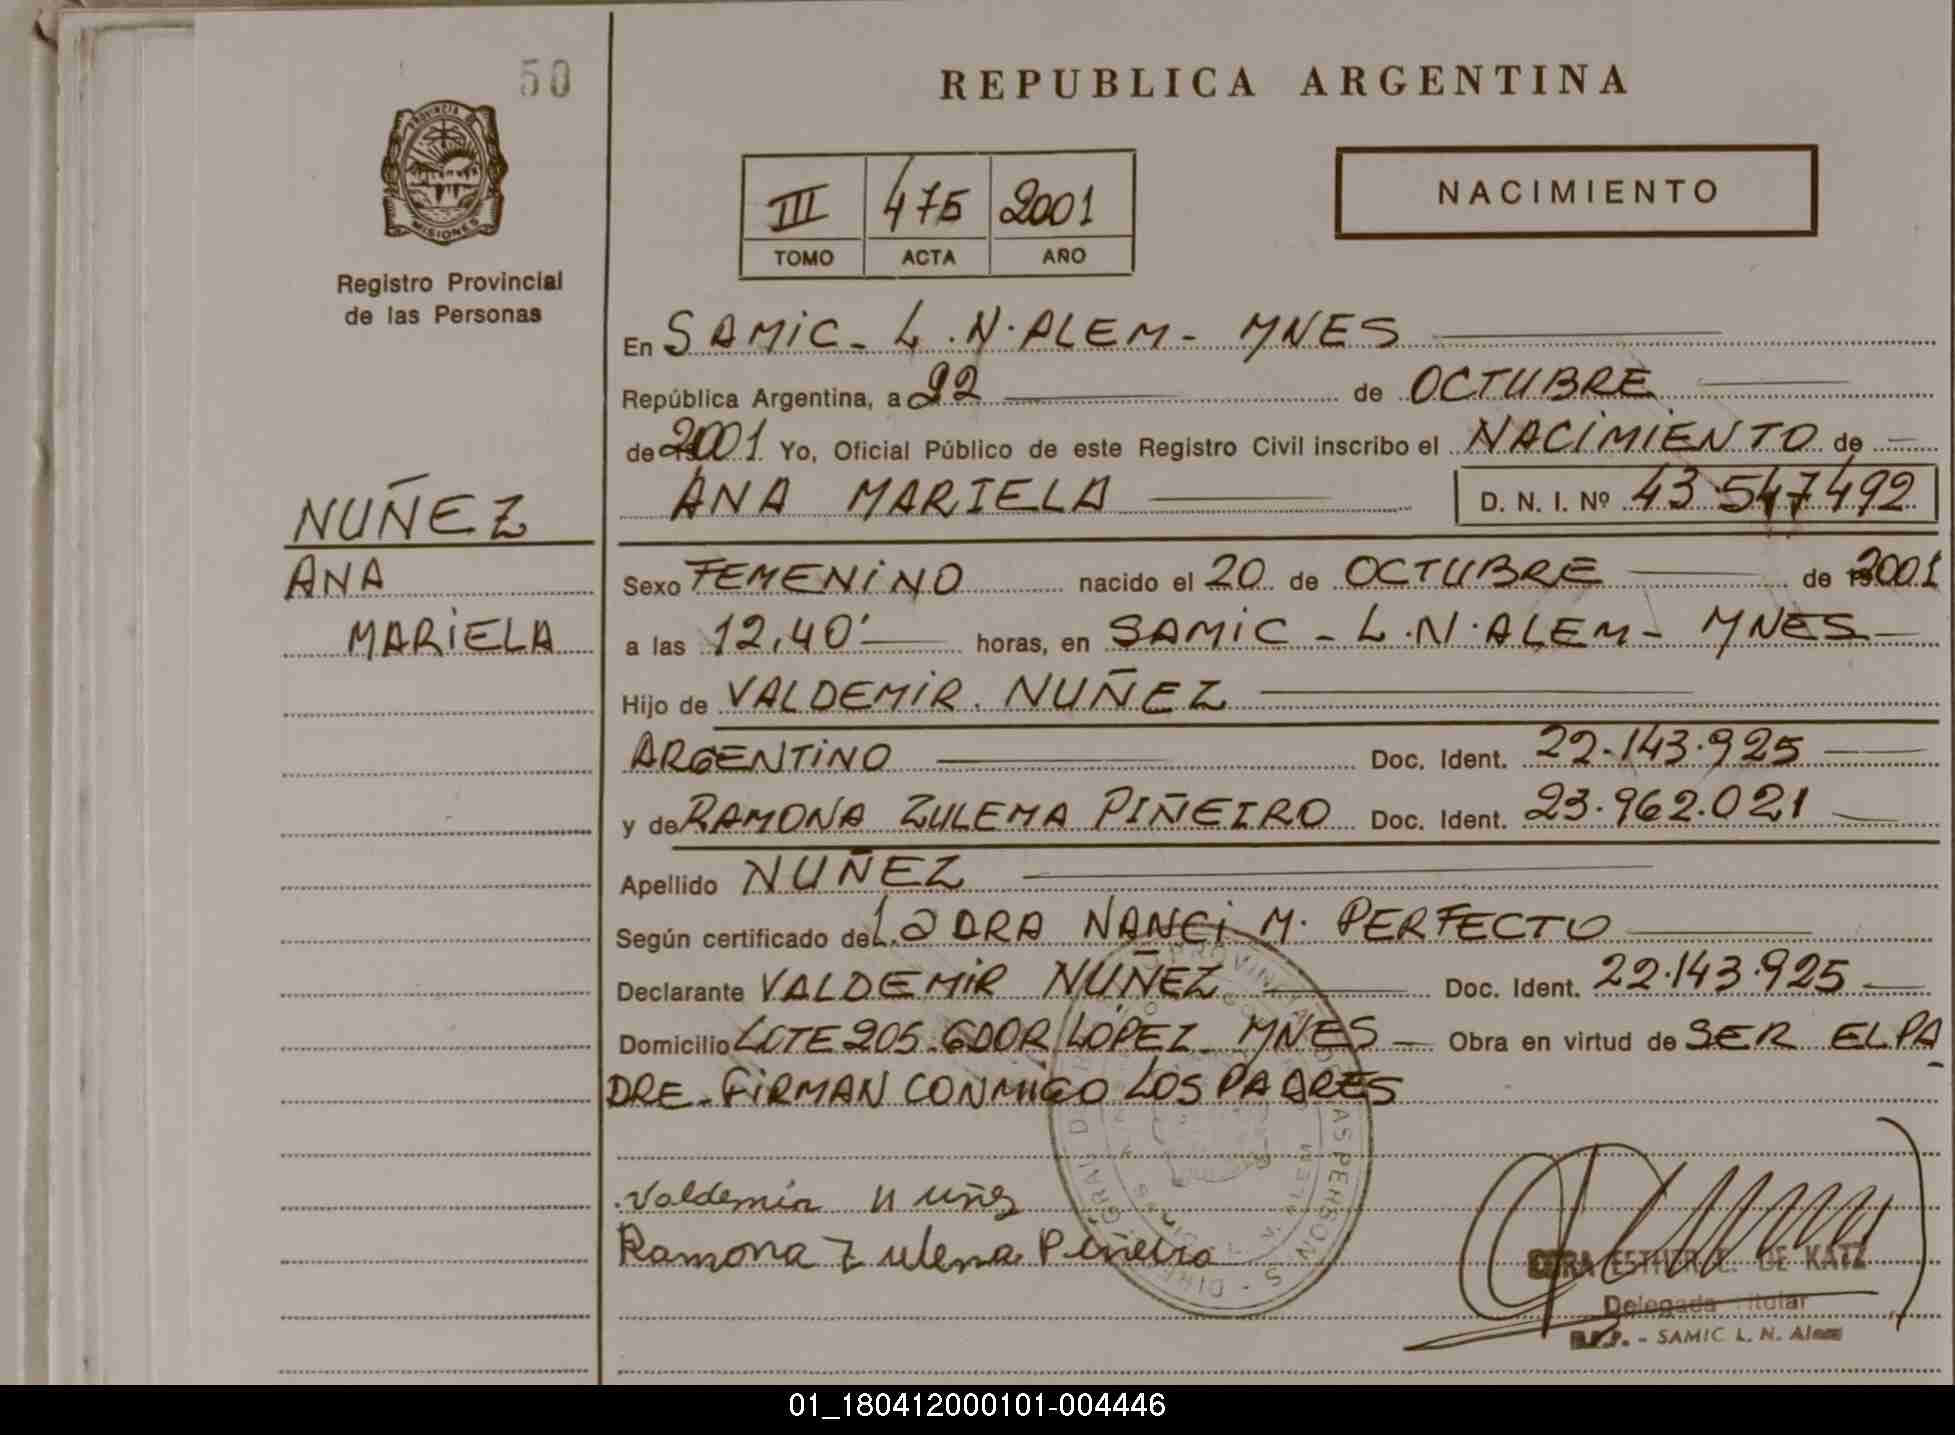 50
PROVINCIA DE
MISIONES
Registro Provincial
de las Personas
NUÑEZ
ANA
MARIELA
REPUBLICA ARGENTINA
III 475 2001
TOMO ACTA AÑO
NACIMIENTO
En SAMIC - L.N. ALEM - MNES
República Argentina, a 22 de OCTUBRE
de 2001 Yo, Oficial Público de este Registro Civil inscribo el NACIMIENTO de
ANA MARIELA D. N. I. Nº 43.547.492
Sexo FEMENINO nacido el 20 de OCTUBRE de 2001
a las 12,40' horas, en SAMIC - L.N. ALEM - MNES
Hijo de VALDEMIR NUÑEZ
ARGENTINO Doc. Ident. 22.143.925
y de RAMONA ZULEMA PIÑEIRO Doc. Ident. 23.962.021
Apellido NUÑEZ
Según certificado de La DRA NANCI M. PERFECTO
Declarante VALDEMIR NUÑEZ Doc. Ident. 22.143.925
Domicilio LOTE 205. GDOR LÓPEZ - MNES - Obra en virtud de SER EL PA
DRE - FIRMAN CONMIGO LOS PADRES
Valdemir Nuñez
Ramona Zulema Piñeiro
ESTHER DE KATZ
Delegada Titular
- SAMIC L. N. Alem
01_180412000101-004446